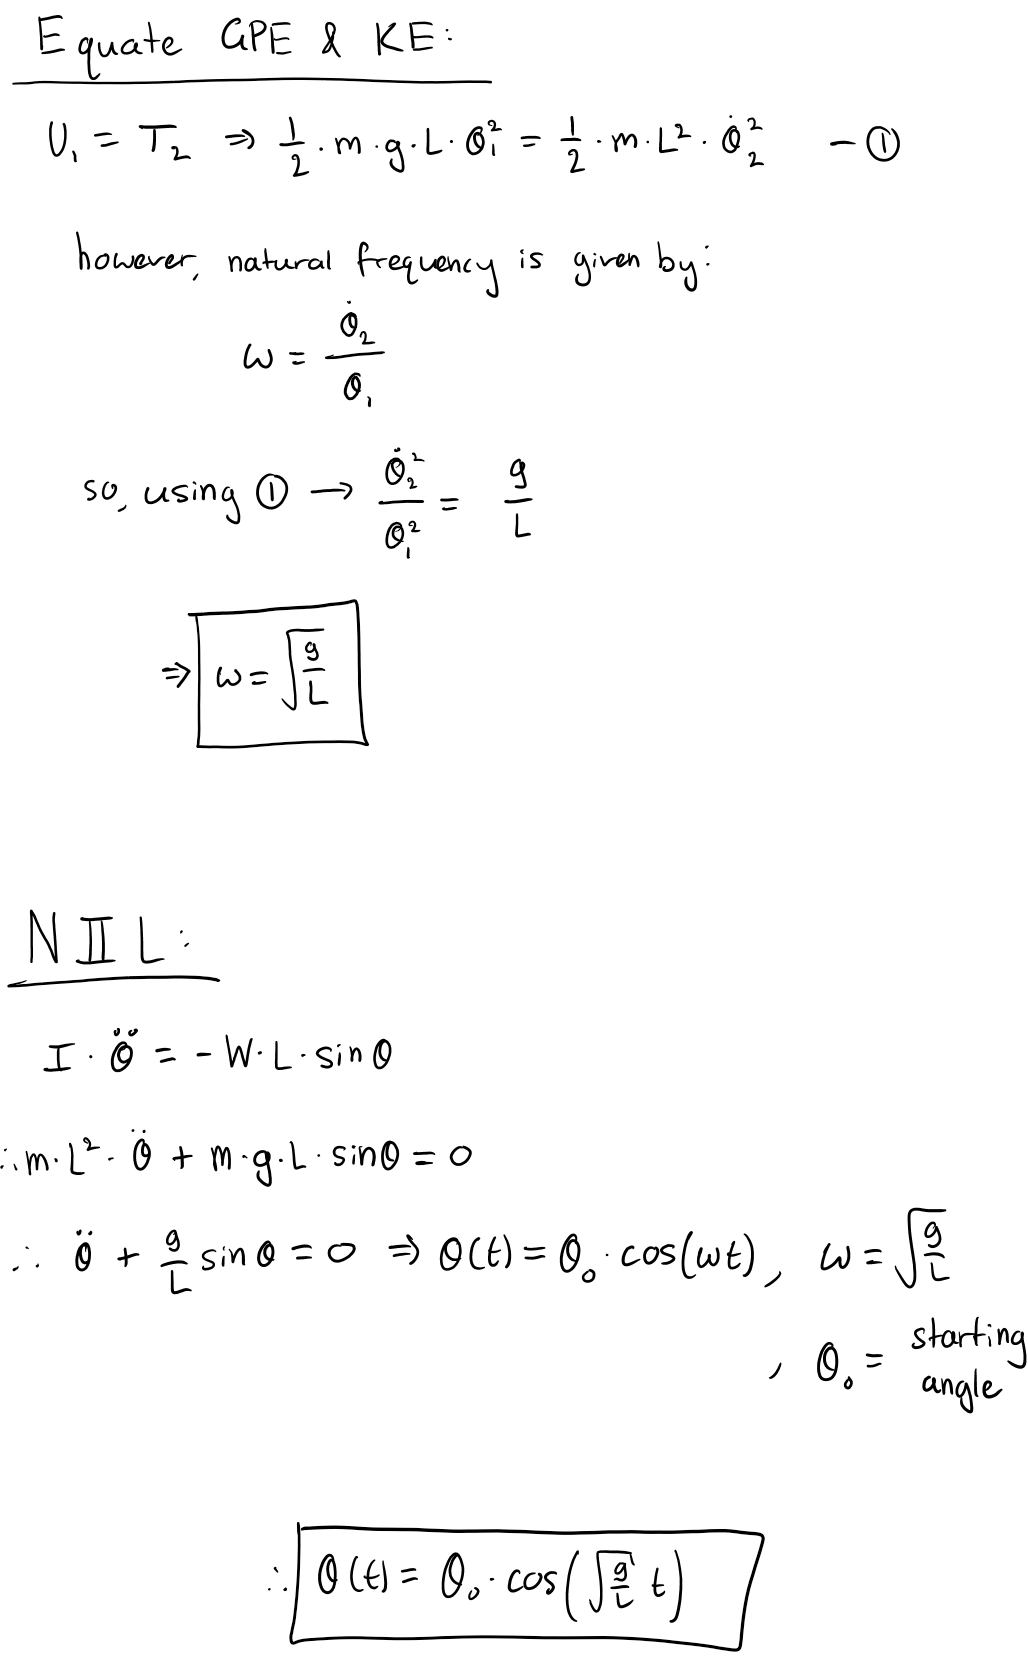 Equate GPE & KE:
U₁ = T₂ ⇒ 1/2 · m · g · L · θ₁² = 1/2 · m · L² · θ̇₂² - ①
however, natural frequency is given by:
ω = θ̇₂/θ₁
so, using ① → θ̇₂²/θ₁² = g/L
⇒ ω = √(g/L)
N II L:
I · θ̈ = - W · L · sin θ
∴ m · L² · θ̈ + m · g · L · sin θ = 0
∴ θ̈ + g/L sin θ = 0 ⇒ θ(t) = θ₀ · cos(ωt), ω = √(g/L)
, θ₀ = starting angle
∴ θ(t) = θ₀ · cos(√(g/L) t)